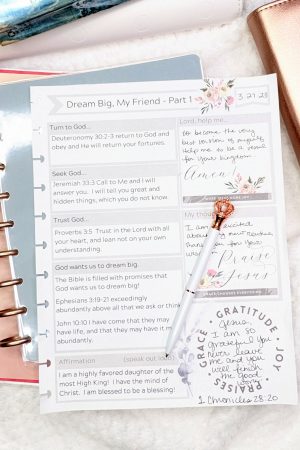 Dream Big, My Friend - Part 1
3-21-23
Turn to God...
Deuteronomy 30:2-3 return to God and
obey and He will return your fortunes.
Seek God...
Jeremiah 33:3 Call to Me and I will
answer you. I will tell you great and
hidden things, which you do not know.
Trust God...
Proverbs 3:5 Trust in the Lord with all
your heart, lean not on your own
understanding.
God wants us to dream big.
The Bible is filled with promises that
God wants us to dream big!
Ephesians 3:19-21 exceedingly
abundantly above all that we ask or think
John 10:10 I have come that they may
have life, and that they may have it m
abundantly.
Affirmation (speak out lo
I am a highly favored daughter of the
most High King! I have the mind of
Christ. I am blessed to be a blessing!
Lord, help me...
to become the very
best version of myself
Help me to be a vessel
for your kingdom
Amen!
My thou
I am excited
about my new routine,
thank you for your
Praise
Jesus
PRAYER CHANGES EVERYTHING
GRACE • GRATITUDE • JOY • PRAISES
Jesus,
I am so
grateful you
never leave
me and you
will finish
the good
work
1 Chronicles 28:20